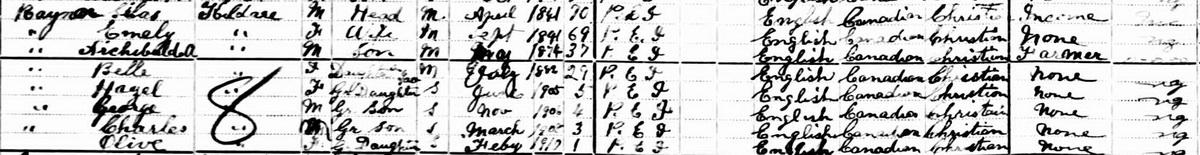 Kildare M Head M April 1841 70 P. E I English Canadian Christian Income
" Emely " F Wife M Sept 1841 69 P. E I English Canadian Christian None
" Archibald " M Son M May 1874 37 P. E I English Canadian Christian Farmer
" Belle " F Daughter M July 1882 29 P. E I English Canadian Christian None
" Hazel F Gr Daughter S June 1905 5 P. E I English Canadian Christian None
" George M Gr Son S Nov 1906 4 P. E I English Canadian Christian None
" Charles " M Gr Son S March 3 P. E I English Canadian Christian None
" Olive " F G Daughter S Feby 1910 1 P. E I English Canadian Christian None
8